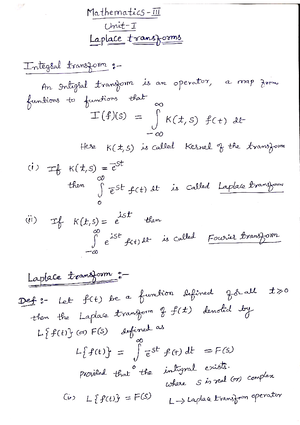 Mathematics-III
Unit-I
Laplace transforms
Integral transform :-
An Integral transform is an operator, a map from
funtions to funtions that
I(f)(s) = ∫_{-∞}^{∞} K(t,s) f(t) dt
Here K(t,s) is called Kernel of the transform
(i) If K(t,s) = e^{-st}
then ∫_{0}^{∞} e^{-st} f(t) dt is called Laplace transform
(ii) If K(t,s) = e^{ist} then
∫_{-∞}^{∞} e^{ist} f(t) dt is called Fourier transform
Laplace transform :-
Def :- Let f(t) be a funtion defined for all t≥0
then the Laplace transform of f(t) denoted by
L{f(t)} (or) F(s) defined as
L{f(t)} = ∫_{0}^{∞} e^{-st} f(t) dt = F(s)
Provided that the integral exists.
where s is real (or) complex
L{f(t)} = F(s) L→Laplace transform operator